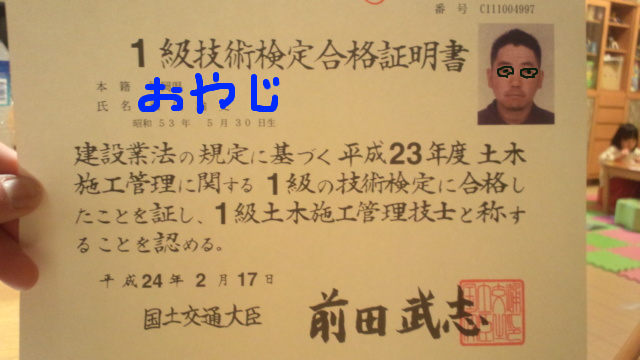 番号 C111004997
1級技術検定合格証明書
本籍
氏名 おやじ
昭和53年 5月30日生
建設業法の規定に基づく平成23年度土木
施工管理に関する1級の技術検定に合格し
たことを証し、1級土木施工管理技士と称す
ることを認める。
平成24年2月17日
国土交通大臣 前田武志